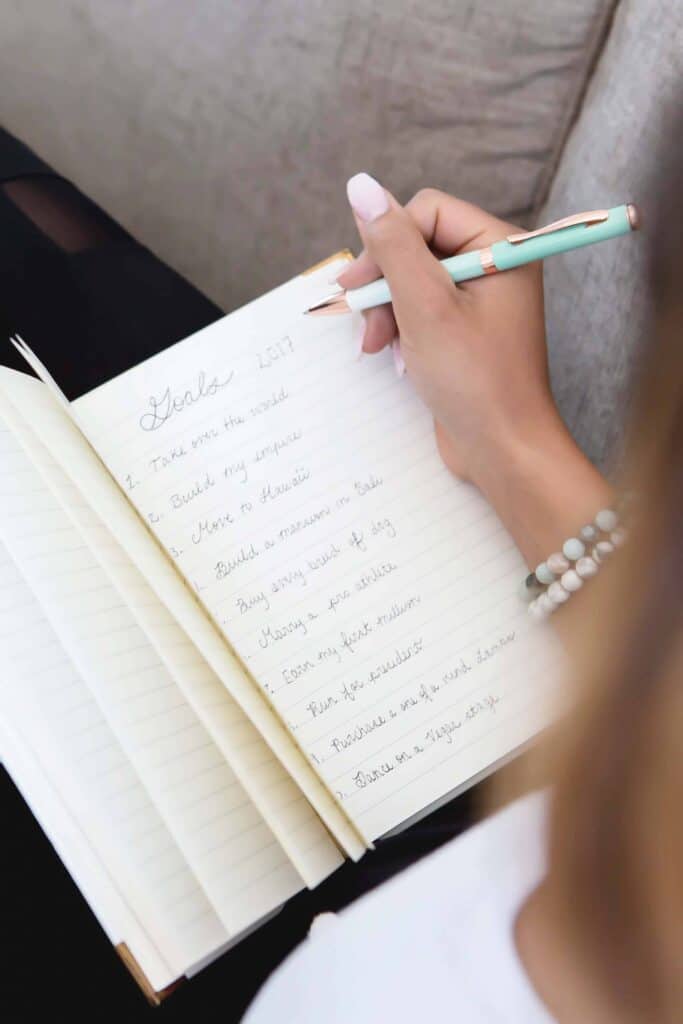 Goals 2017
1. Take over the world
2. Build my empire
3. Move to Hawaii
Build a mansion in Bali
Buy every breed of dog
Marry a pro athlete
Earn my first million
Run for president
Purchase a one of a kind
Dance on a Vegas stage